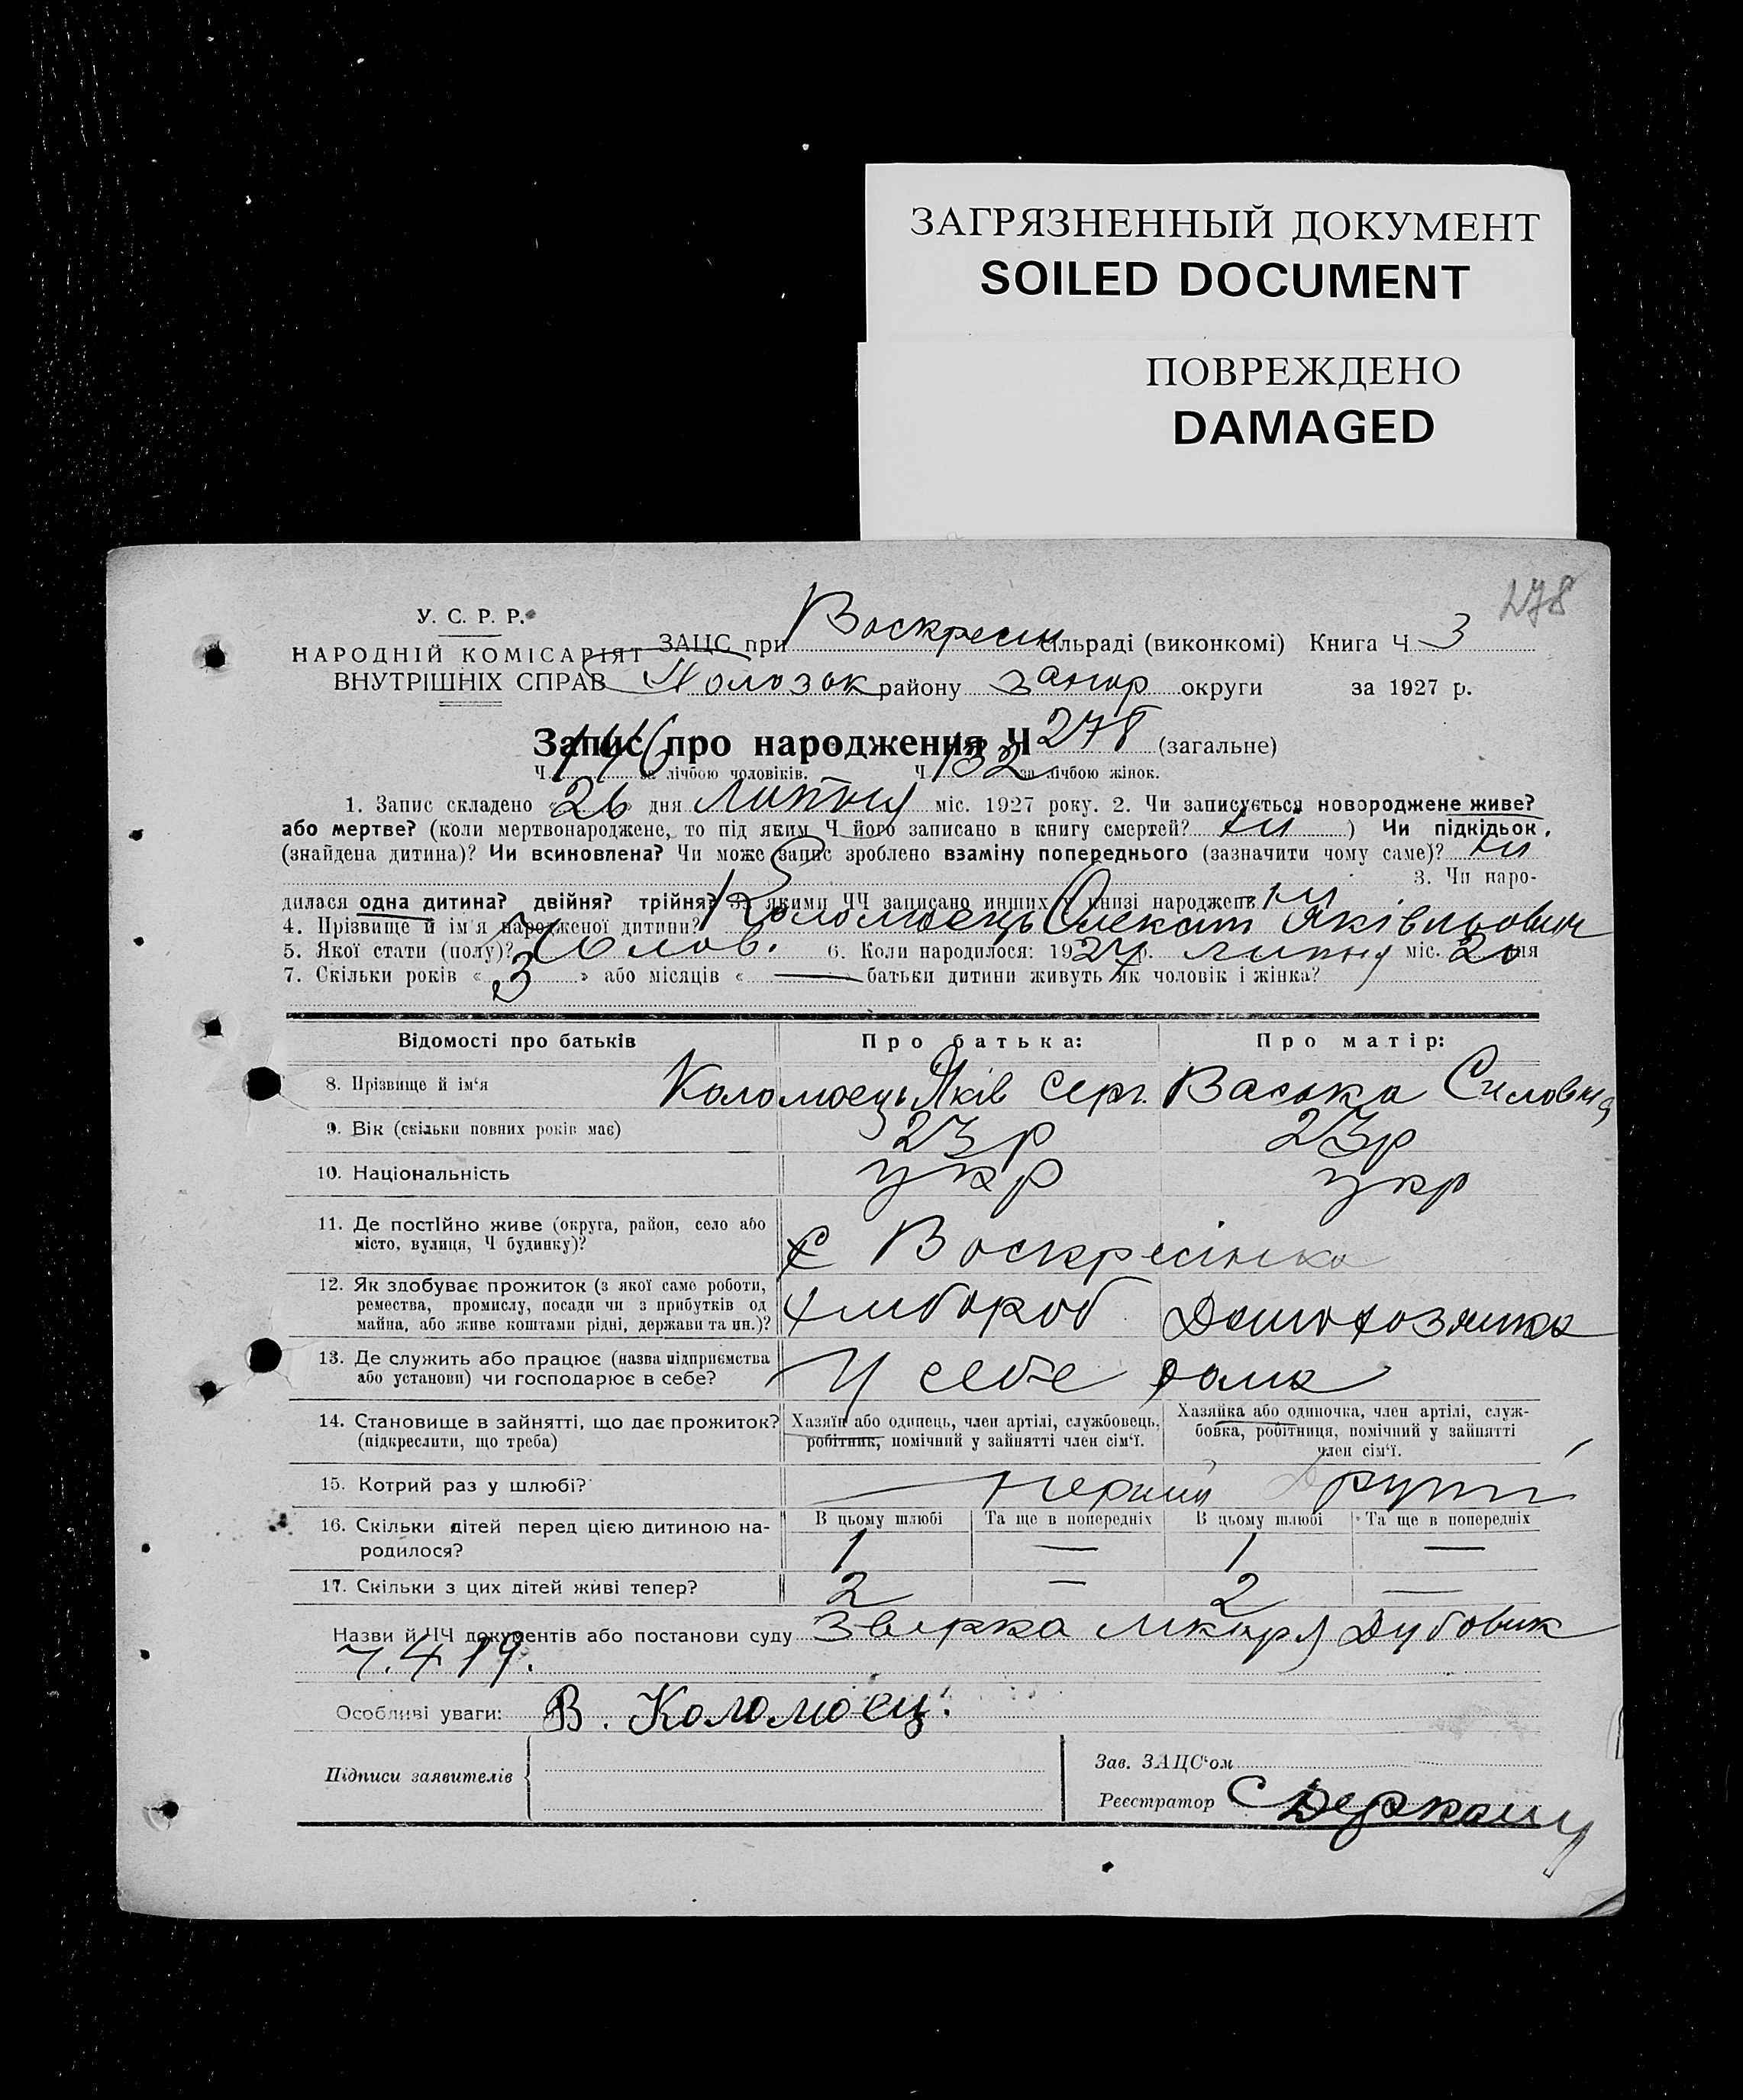 ЗАГРЯЗНЕННЫЙ ДОКУМЕНТ
SOILED DOCUMENT
ПОВРЕЖДЕНО
DAMAGED
278
У. С. Р. Р.
НАРОДНІЙ КОМІСАРІЯТ ЗАЦС при Воскресен сільраді (виконкомі) Книга Ч 3
ВНУТРІШНІХ СПРАВ Пологок району Запор округи за 1927 р.
Запис про народження Ч 278 (загальне)
Ч 146 за лічбою чоловіків. Ч 132 за лічбою жінок.
1. Запис складено «26» дня липня міс. 1927 року. 2. Чи записується новороджене живе?
або мертве? (коли мертвонароджене, то під яким Ч його записано в книгу смертей? ні ) Чи підкідьок,
(знайдена дитина)? Чи всиновлена? Чи може запис зроблено взаміну попереднього (зазначити чому саме)? ні
3. Чи наро-
дилася одна дитина? двійня? трійня? За якими ЧЧ записано инших у книзі народжень ні
4. Прізвище й ім'я народженої дитини? Коломоєць Олексан Яківльович
5. Якої стати (полу)? Чолов. 6. Коли народилося: 1927 р. липня міс. 20 дня
7. Скільки років «3» або місяців « — батьки дитини живуть як чоловік і жінка?
Відомості про батьків Про батька: Про матір:
8. Прізвище й ім'я Коломоєць Яків Серг. Васька Силовна
9. Вік (скільки повних років має) 23 р 23 р
10. Національність укр укр
11. Де постійно живе (округа, район, село або
місто, вулиця, Ч будинку)? С Воскресінка
12. Як здобуває прожиток (з якої саме роботи,
ремества, промислу, посади чи з прибутків од
майна, або живе коштами рідні, держави та ин.)? Хлібороб Домохозяика
13. Де служить або працює (назва підприємства
або установи) чи господарює в себе? У себе дома
14. Становище в зайнятті, що дає прожиток? Хазяїн або одинець, член артілі, службовець, Хазяйка або одиночка, член артілі, служ-
(підкреслити, що треба) робітник, помічний у зайнятті член сім'ї. бовка, робітниця, помічний у зайнятті
член сім'ї.
15. Котрий раз у шлюбі? Перший Другий
16. Скільки дітей перед цією дитиною на- В цьому шлюбі Та ще в попередніх В цьому шлюбі Та ще в попередніх
родилося? 1 — 1 —
17. Скільки з цих дітей живі тепер? 2 — 2 —
Назви й ЧЧ документів або постанови суду Дубовик
ч. 419.
Особливі уваги: В. Коломоец.
Підписи заявителів Зав. ЗАЦС'ом
Реєстратор